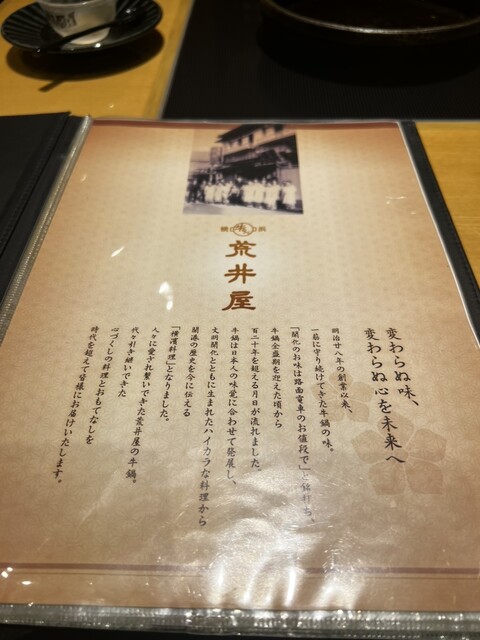 横浜
荒井屋
変わらぬ味、
変わらぬ心を未来へ
明治廿八年の創業以来、
一筋に守り続けてきた牛鍋の味。
「開化のお味は路面電車のお値段で」と銘打ち、
牛鍋全盛期を迎えた頃から
百二十年を超える月日が流れました。
牛鍋は日本人の味覚に合わせて発展し、
文明開化とともに生まれたハイカラな料理から
開港の歴史を今に伝える
「横濱料理」となりました。
人々に愛され繋いできた荒井屋の牛鍋。
代々引き継いできた
心づくしの料理とおもてなしを
時代を超えて皆様にお届けいたします。